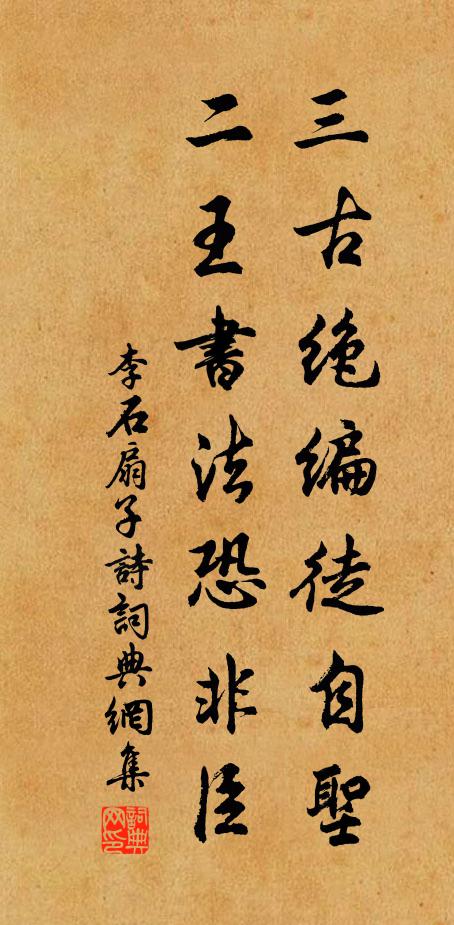 三古绝编徒自聖
二王書法恐非臣
李石扇子詩詞典網集
詞典网印